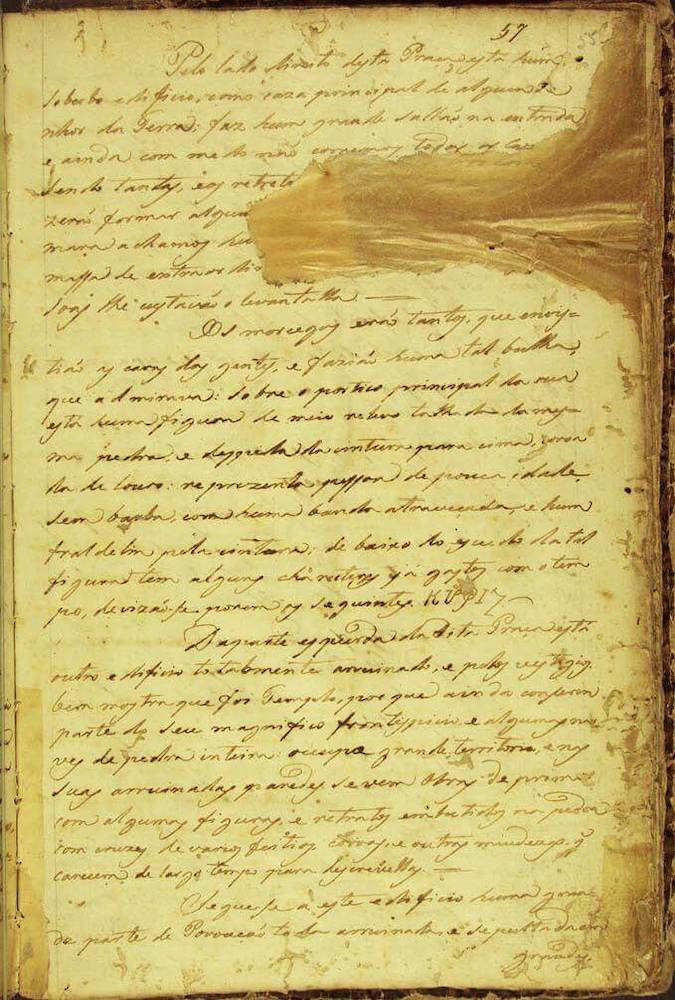 57
Pelo lado direito desta Praça está hum
soberbo edificio, como caza principal de algum se
nhor da Terra: faz hum grande sallaõ na entrada
e ainda com medo naõ corremos todas as ca
sendo tantos, e os retrete
zeraõ formar algum
mara achamos hu
massa de extraordin
soas lhe custavaõ o levantalla
Os morcegos eraõ tantos, que envis=
tiaõ as caras das gentes, e faziaõ huma tal bulha,
que admirava: sobre o portico principal da rua
está huma figura de meio relevo talhada da mes=
ma pedra, e despida da cintura para cima, coroa
da de louro: reprezenta pessoa de pouca idade,
sem barba, com huma banda atraveçada, e hum
fraldelim pela cintura; debaixo do escudo da tal
figura tem alguns characteres já gastos com o tem
po, divizaõ-se porem os seguintes.
Da parte esquerda da dita Praça está
outro edificio totalmente arruinado, e pelos vestigios
bem mostra que foi Templo, por que ainda conserva
parte de seu magnifico frontespicio, e algumas na
ves de pedra inteira: occupa grande territorio, e nas
suas arruinadas paredes se vem obras de primor
com algumas figuras, e retratos embutidos na pedra
com cruzes de varios feitios, corvos, e outras miudezas, q
carecem de largo tempo para descrevellas.
Segue-se a este edificio huma gran
de parte de Povoaçaõ toda arruinada, e sepultada em
grandes